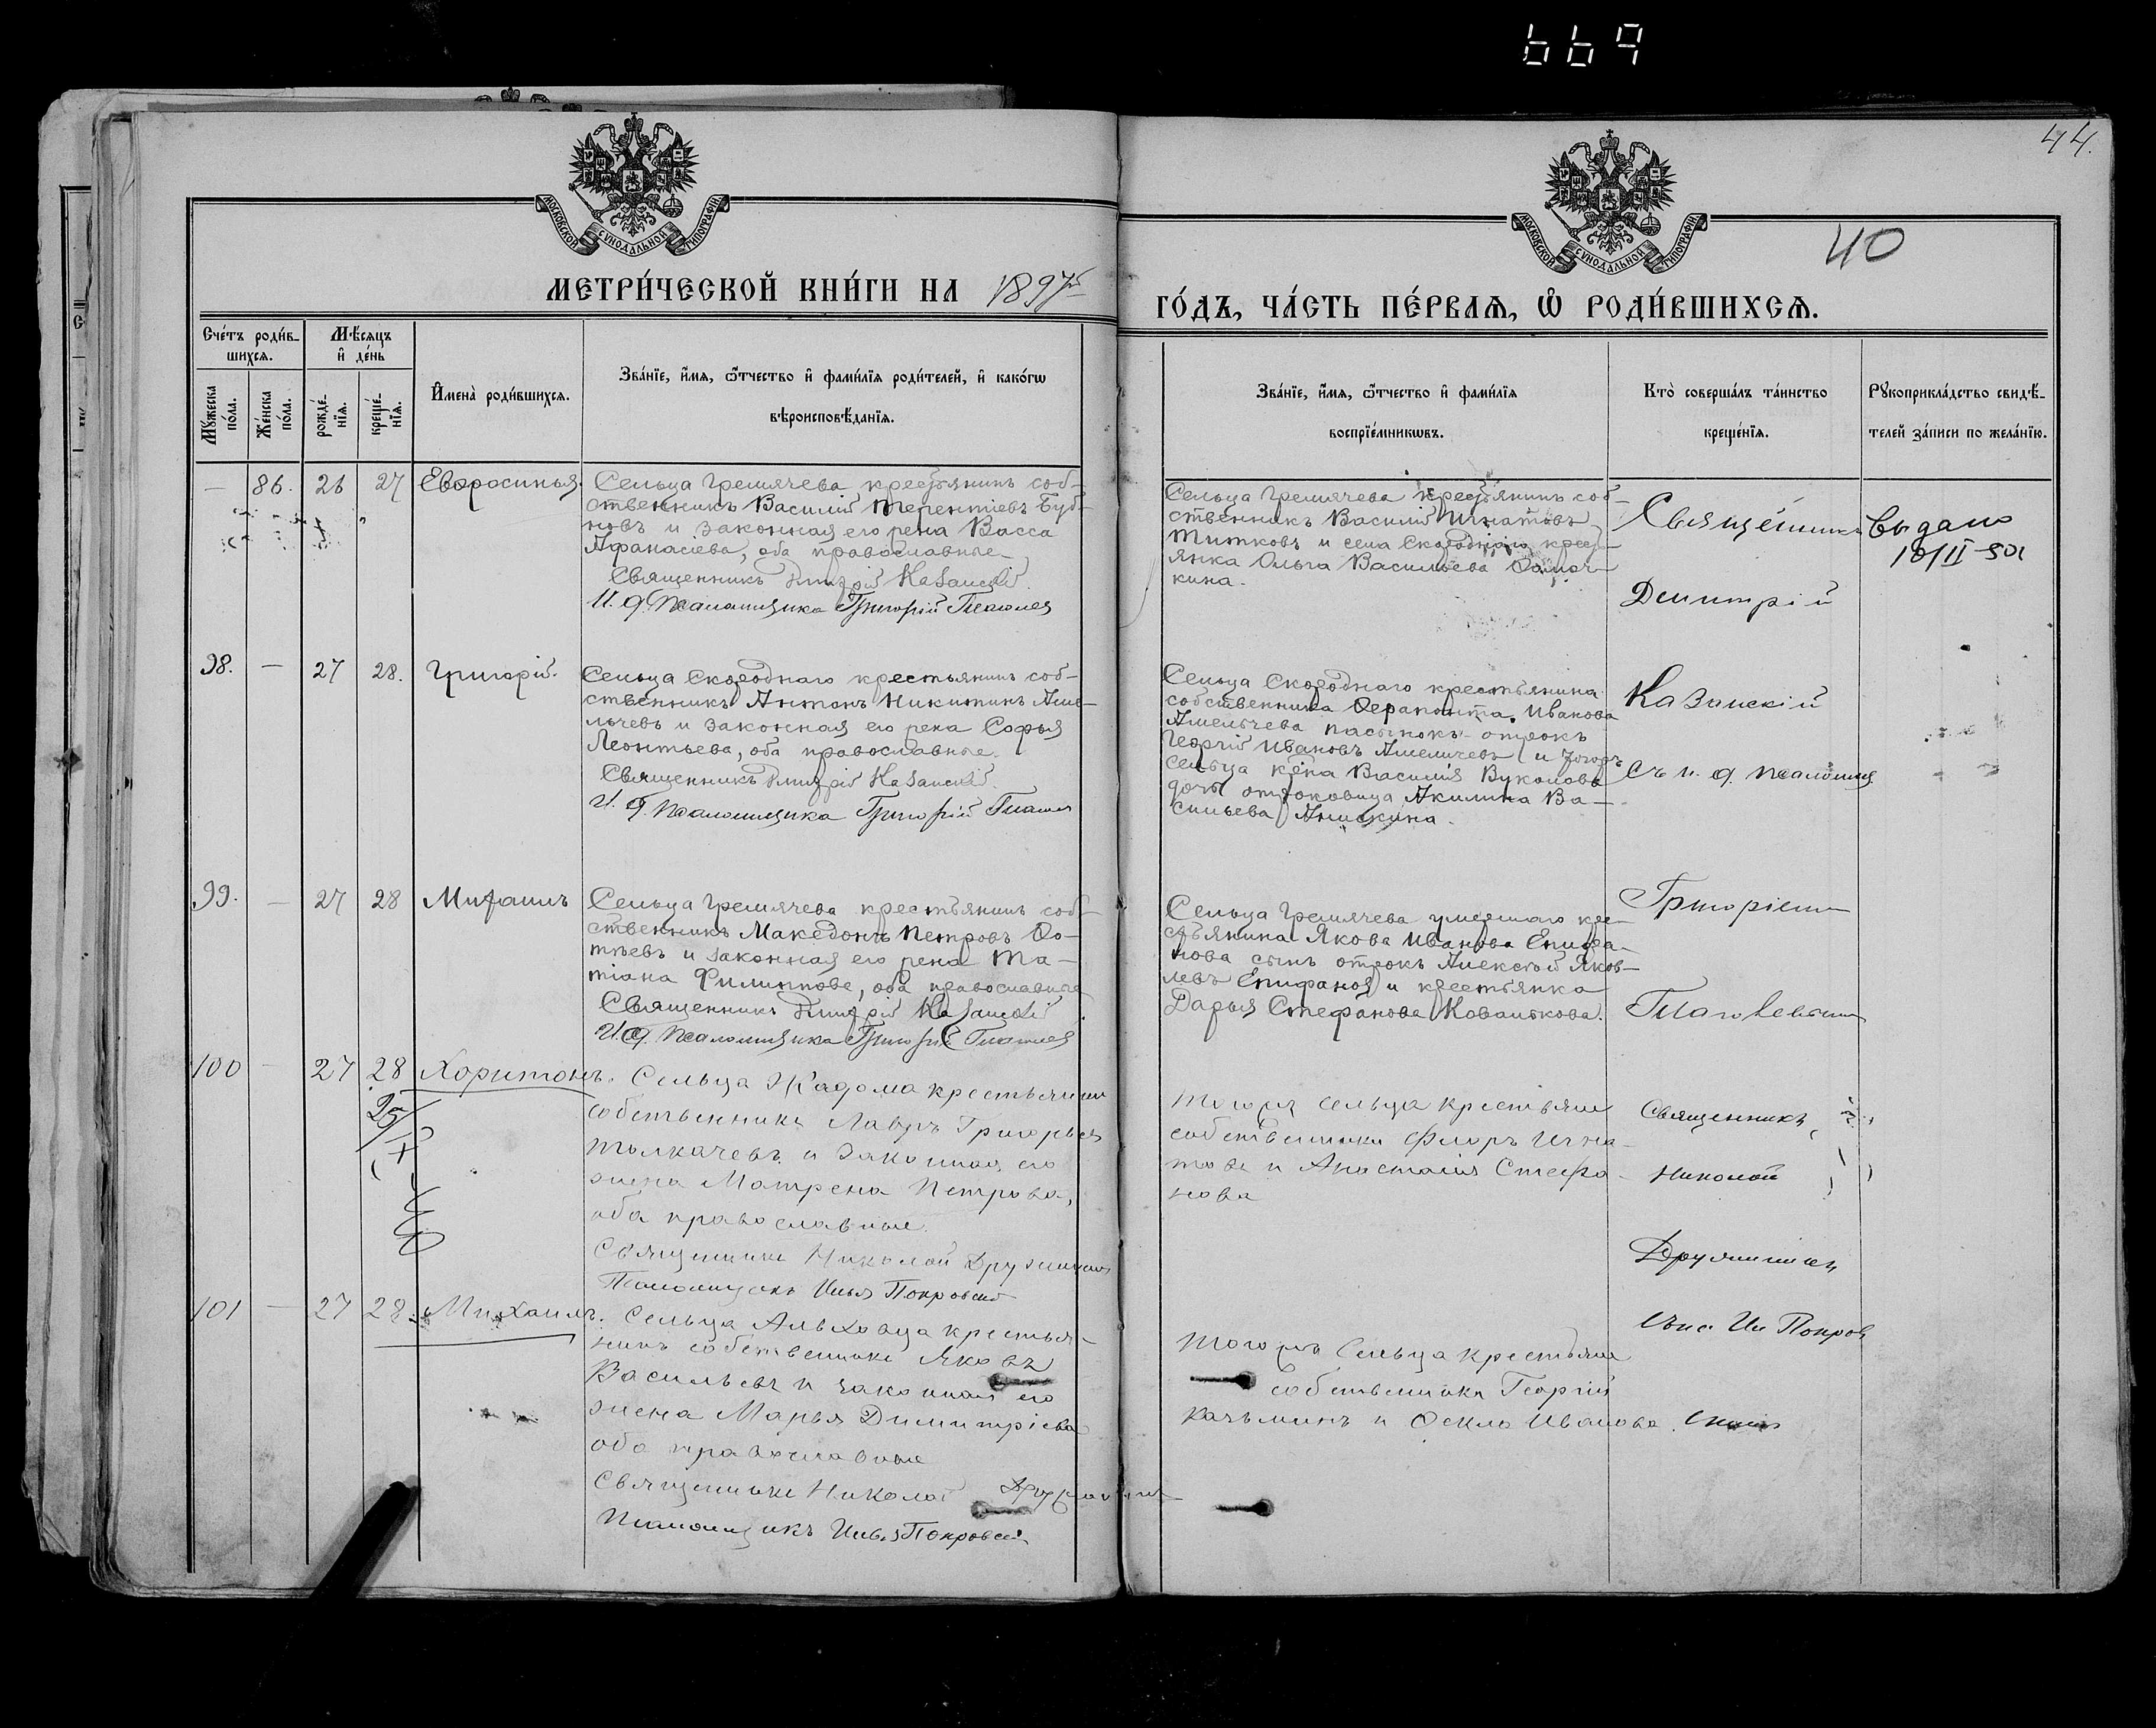 669
44.
МОСКОВСКОЙ СѴНОДАЛЬНОЙ ТИПОГРАФІИ
МОСКОВСКОЙ СѴНОДАЛЬНОЙ ТИПОГРАФІИ
40
МЕТРИ́ЧЕСКОЙ КНИ́ГИ НА 1897й
ГО́ДЪ, ЧА́СТЬ ПЕ́РВАЯ, Ѡ РОДИ́ВШИХСЯ.
Сче́тъ роди́в-
шихся.
Мѣ́сяцъ
и҆ де́нь
Мꙋ́жеска по́ла.
Же́нска по́ла.
рожде́-нїѧ.
креще́-нїѧ.
И҆мена̀ роди́вшихсѧ.
Зва́нїе, и҆́мѧ, ѻ҆́тчество и҆ фами́лїѧ роди́телей, и҆ како́гѡ
вѣроисповѣ́данїѧ.
Зва́нїе, и҆́мѧ, ѻ҆́тчество и҆ фами́лїѧ
воспрїе́мникѡвъ.
Кто̀ соверша́лъ та́инство
креще́нїѧ.
Рꙋкоприкла́дство свидѣ́-
телей за́писи по жела́нїю.
— 86. 26 27 Евфросинья.
Сельца Гремячева крестьянинъ соб-
ственникъ Василий Терентіевъ Буб-
новъ и законная его жена Васса
Афанасіева, оба православные
Священникъ Димитрій Казанскій
И. д. Псаломщика Григорій
Сельца Гремячева крестьянинъ соб-
ственникъ Василій Игнатовъ
Титковъ и села Скородного крест-
янка Ольга Васильева
кина.
Священникъ
Димитрій
Выдано
10/II-901
98. — 27 28. Григорій.
Сельца Скородного крестьянинъ соб-
ственникъ Антонъ Никитинъ Амe-
льчевъ и законная его жена Софья
Леонтьева, оба православные.
Священникъ Димитрій Казанскій
И. д. Псаломщика Григорій
Сельца Скородного крестьянина
собственника Ферапонта Иванова
Амельчева пасынокъ отрокъ
Георгій Ивановъ Амельчевъ и тогожъ
сельца кр-на Василія Вуколова
дочь отроковица Акилина Ва-
сильева Анискина.
Казанскій
Съ и. д. псаломщ.
99. — 27 28 Митрофанъ
Сельца Гремячева крестьянинъ соб-
ственникъ Македонъ Петровъ Фо-
тѣевъ и законная его жена Та-
тіана Филиппова, оба православные
Священникъ Димитрій Казанскій
И. д. Псаломщика Григорій
Сельца Гремячева умершаго кре-
стьянина Якова Иванова Епифа-
нова сынъ отрокъ Алексѣй Яков-
левъ Епифановъ и крестьянка
Дарья Стефанова Ковалькова.
Григоріемъ
100 — 27 28 Харитонъ.
Сельца Жадома крестьянинъ
собственникъ Лавръ Григорьевъ
Толкачевъ и законная его
жена Матрена Петрова,
оба православные.
Священникъ Николай Дружининъ
Псаломщикъ Илья Покровскій
Тогожъ сельца крестьяне
собственники Флоръ Игна-
товъ и Анастасія Стефа-
нова
Священникъ
Николай
Дружининъ
съ пс. Ил Покров
101 — 27 28. Михаилъ.
Сельца Альховца крестья-
нинъ собственникъ Яковъ
Васильевъ и законная его
жена Марья Димитріева
оба православные
Священникъ Николай Дружининъ
Псаломщикъ Илья Покровскій
Тогожъ Сельца крестьяне
собственники Георгій
Казьминъ и Фекла Иванова.